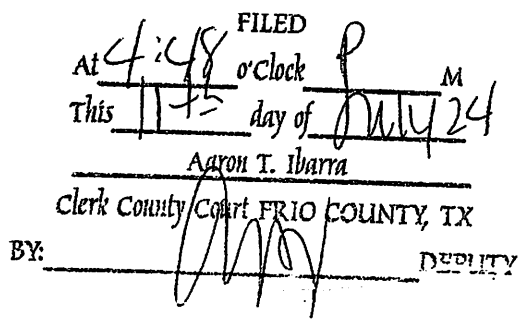 FILED
At 4:48 o'Clock P M
This 11th day of July 24
Aaron T. Ibarra
Clerk County Court FRIO COUNTY, TX
BY: DEPUTY